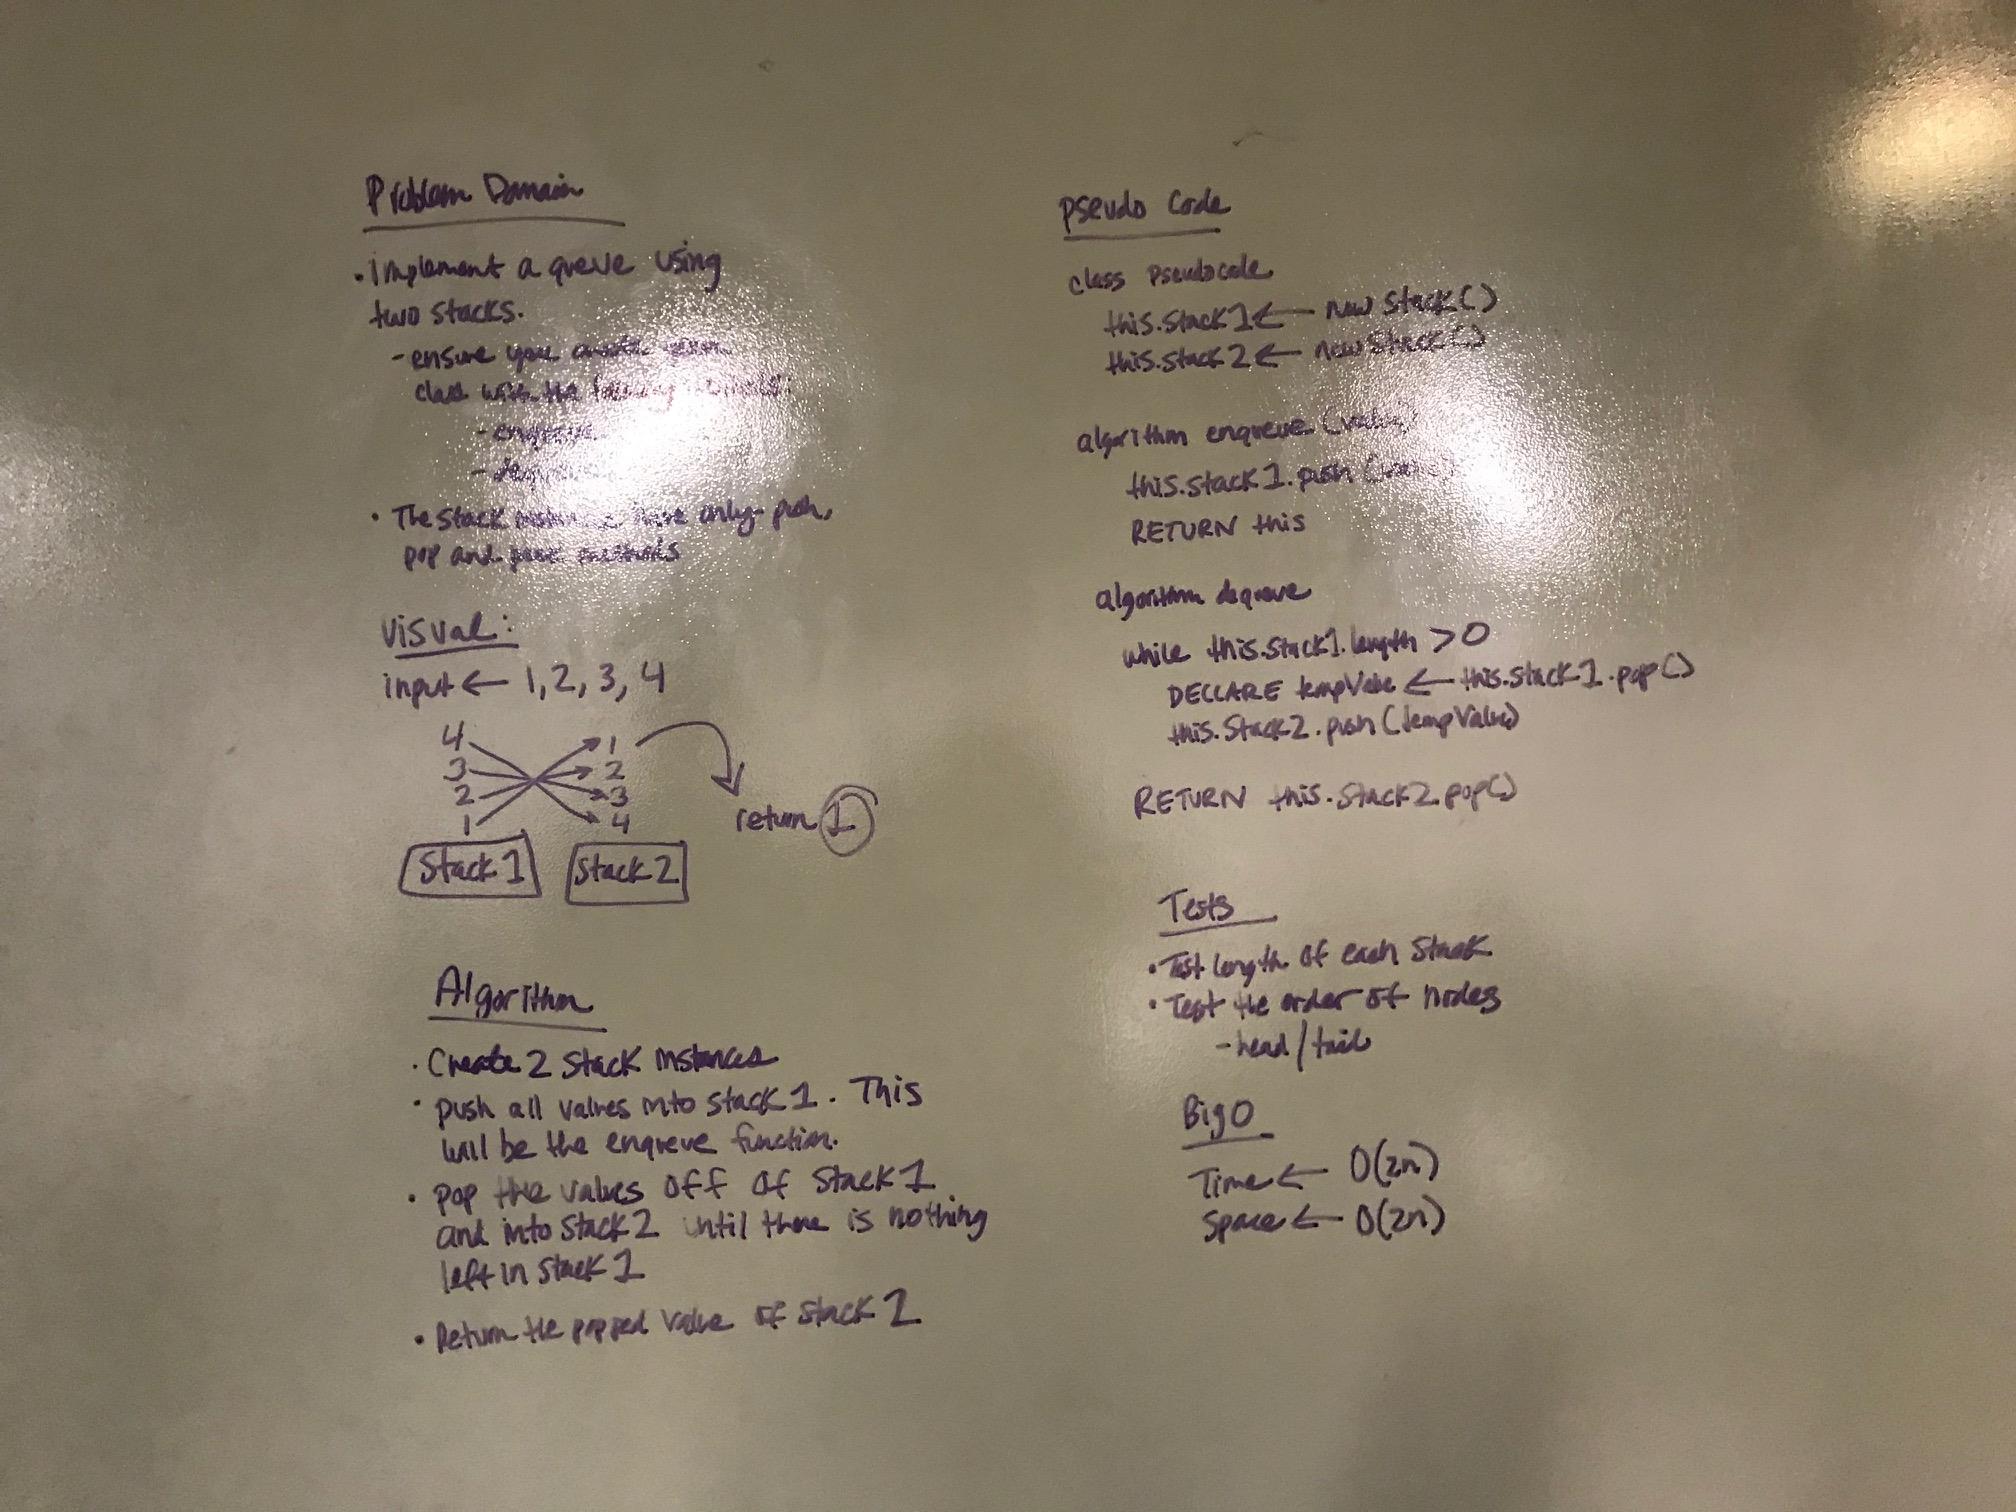 Problem Domain
• implement a queue using
two stacks.
- ensure you create
class with the following
- enqueue
- dequeue
• The stack have only push,
pop and peek methods
Visual:
input ← 1, 2, 3, 4
4 1
3 2
2 3
1 4
return 1
Stack 1 Stack 2
Algorithm
• Create 2 Stack instances
• push all values into stack 1. This
will be the enqueue function.
• Pop the values off of stack 1
and into stack 2 until there is nothing
left in stack 1
• Return the popped value of stack 2
Pseudo Code
class Pseudocode
this.stack1 ← new Stack()
this.stack2 ← new Stack()
algorithm enqueue (value)
this.stack1.push(
RETURN this
algorithm dequeue
while this.stack1.length > 0
DECLARE tempValue ← this.stack1.pop()
this.stack2.push(tempValue)
RETURN this.stack2.pop()
Tests
• Test length of each stack
• Test the order of nodes
- head/tail
Big O
Time ← O(2n)
Space ← O(2n)